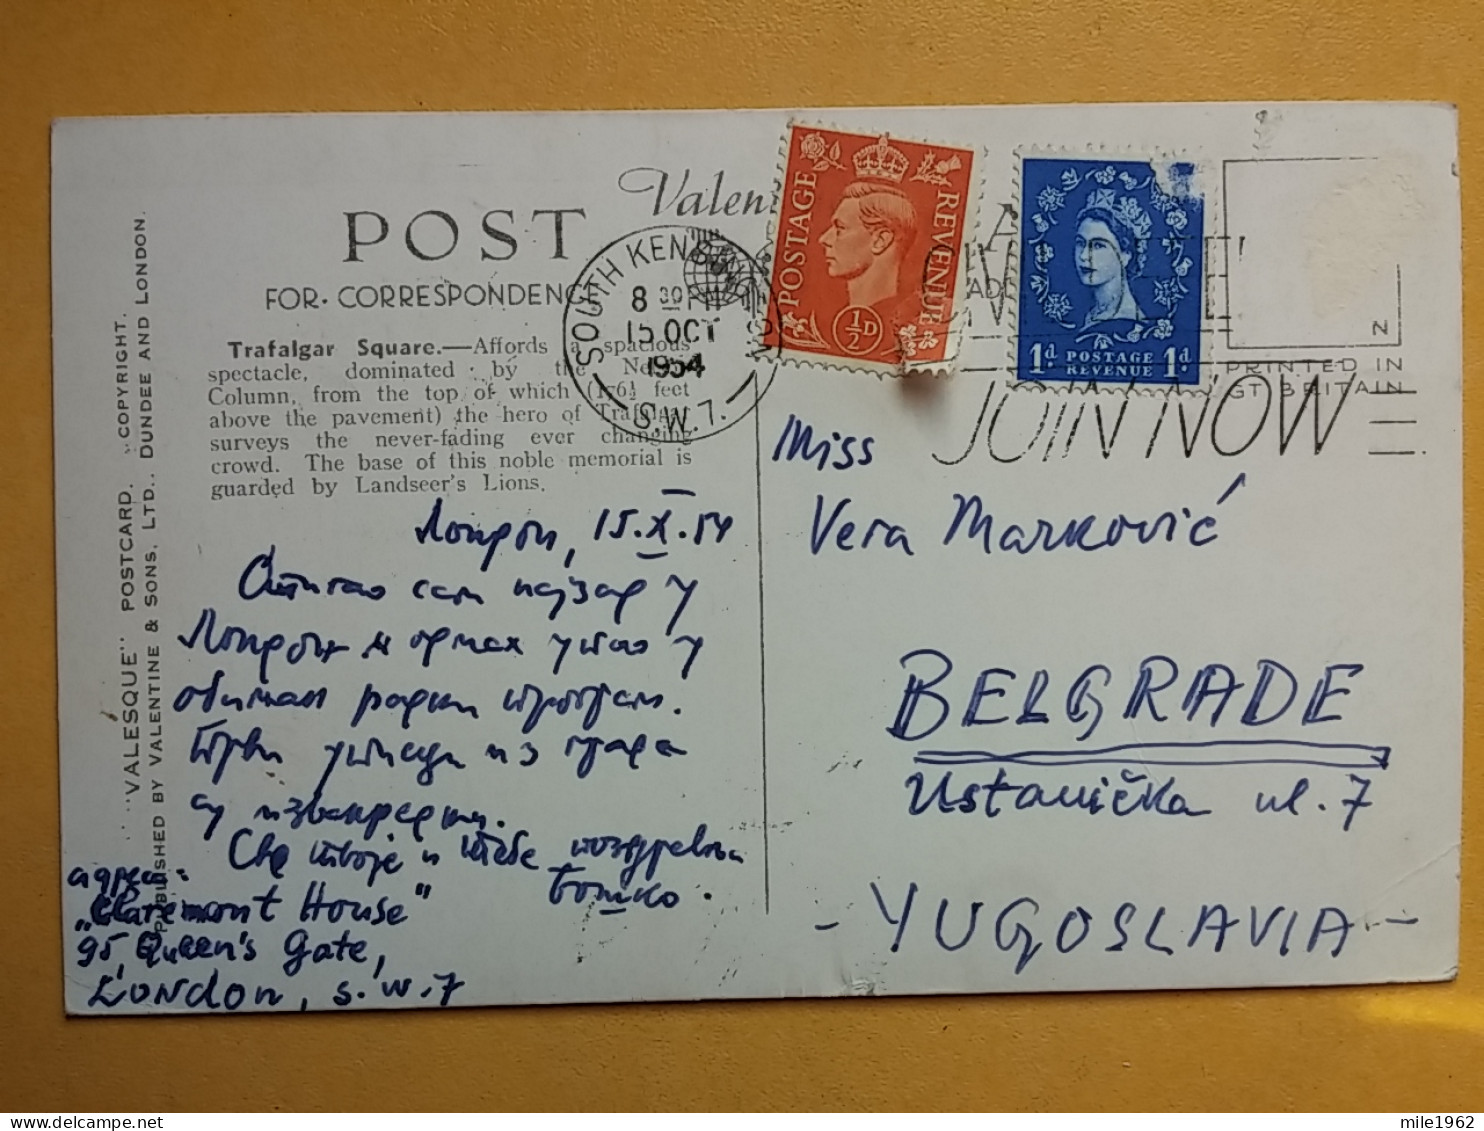 "VALESQUE" POSTCARD. COPYRIGHT.
PUBLISHED BY VALENTINE & SONS, LTD., DUNDEE AND LONDON.
POST
FOR CORRESPONDENCE
Trafalgar Square.—Affords a spacious
spectacle, dominated by the
Column, from the top of which feet
above the pavement) the hero of
surveys the never-fading ever changing
crowd. The base of this noble memorial is
guarded by Landseer's Lions.
SOUTH KENSINGTON
8 30 PM
15 OCT
1954
S.W.7.
POSTAGE
REVENUE
½D
1d POSTAGE REVENUE 1d
JOIN NOW
PRINTED IN
GT BRITAIN
Лондон, 15.X.54
Стигао сам најзад у
Лондон и одмах ушао у
обиман радни програм.
Први утисци из града
су изванредни.
Све твоје и тебе поздравља
Бошко.
адреса:
"Claremont House"
95, Queen's Gate,
London, S.W.7
Miss
Vera Marković
BELGRADE
Ustanička ul. 7
- YUGOSLAVIA -
mile1962